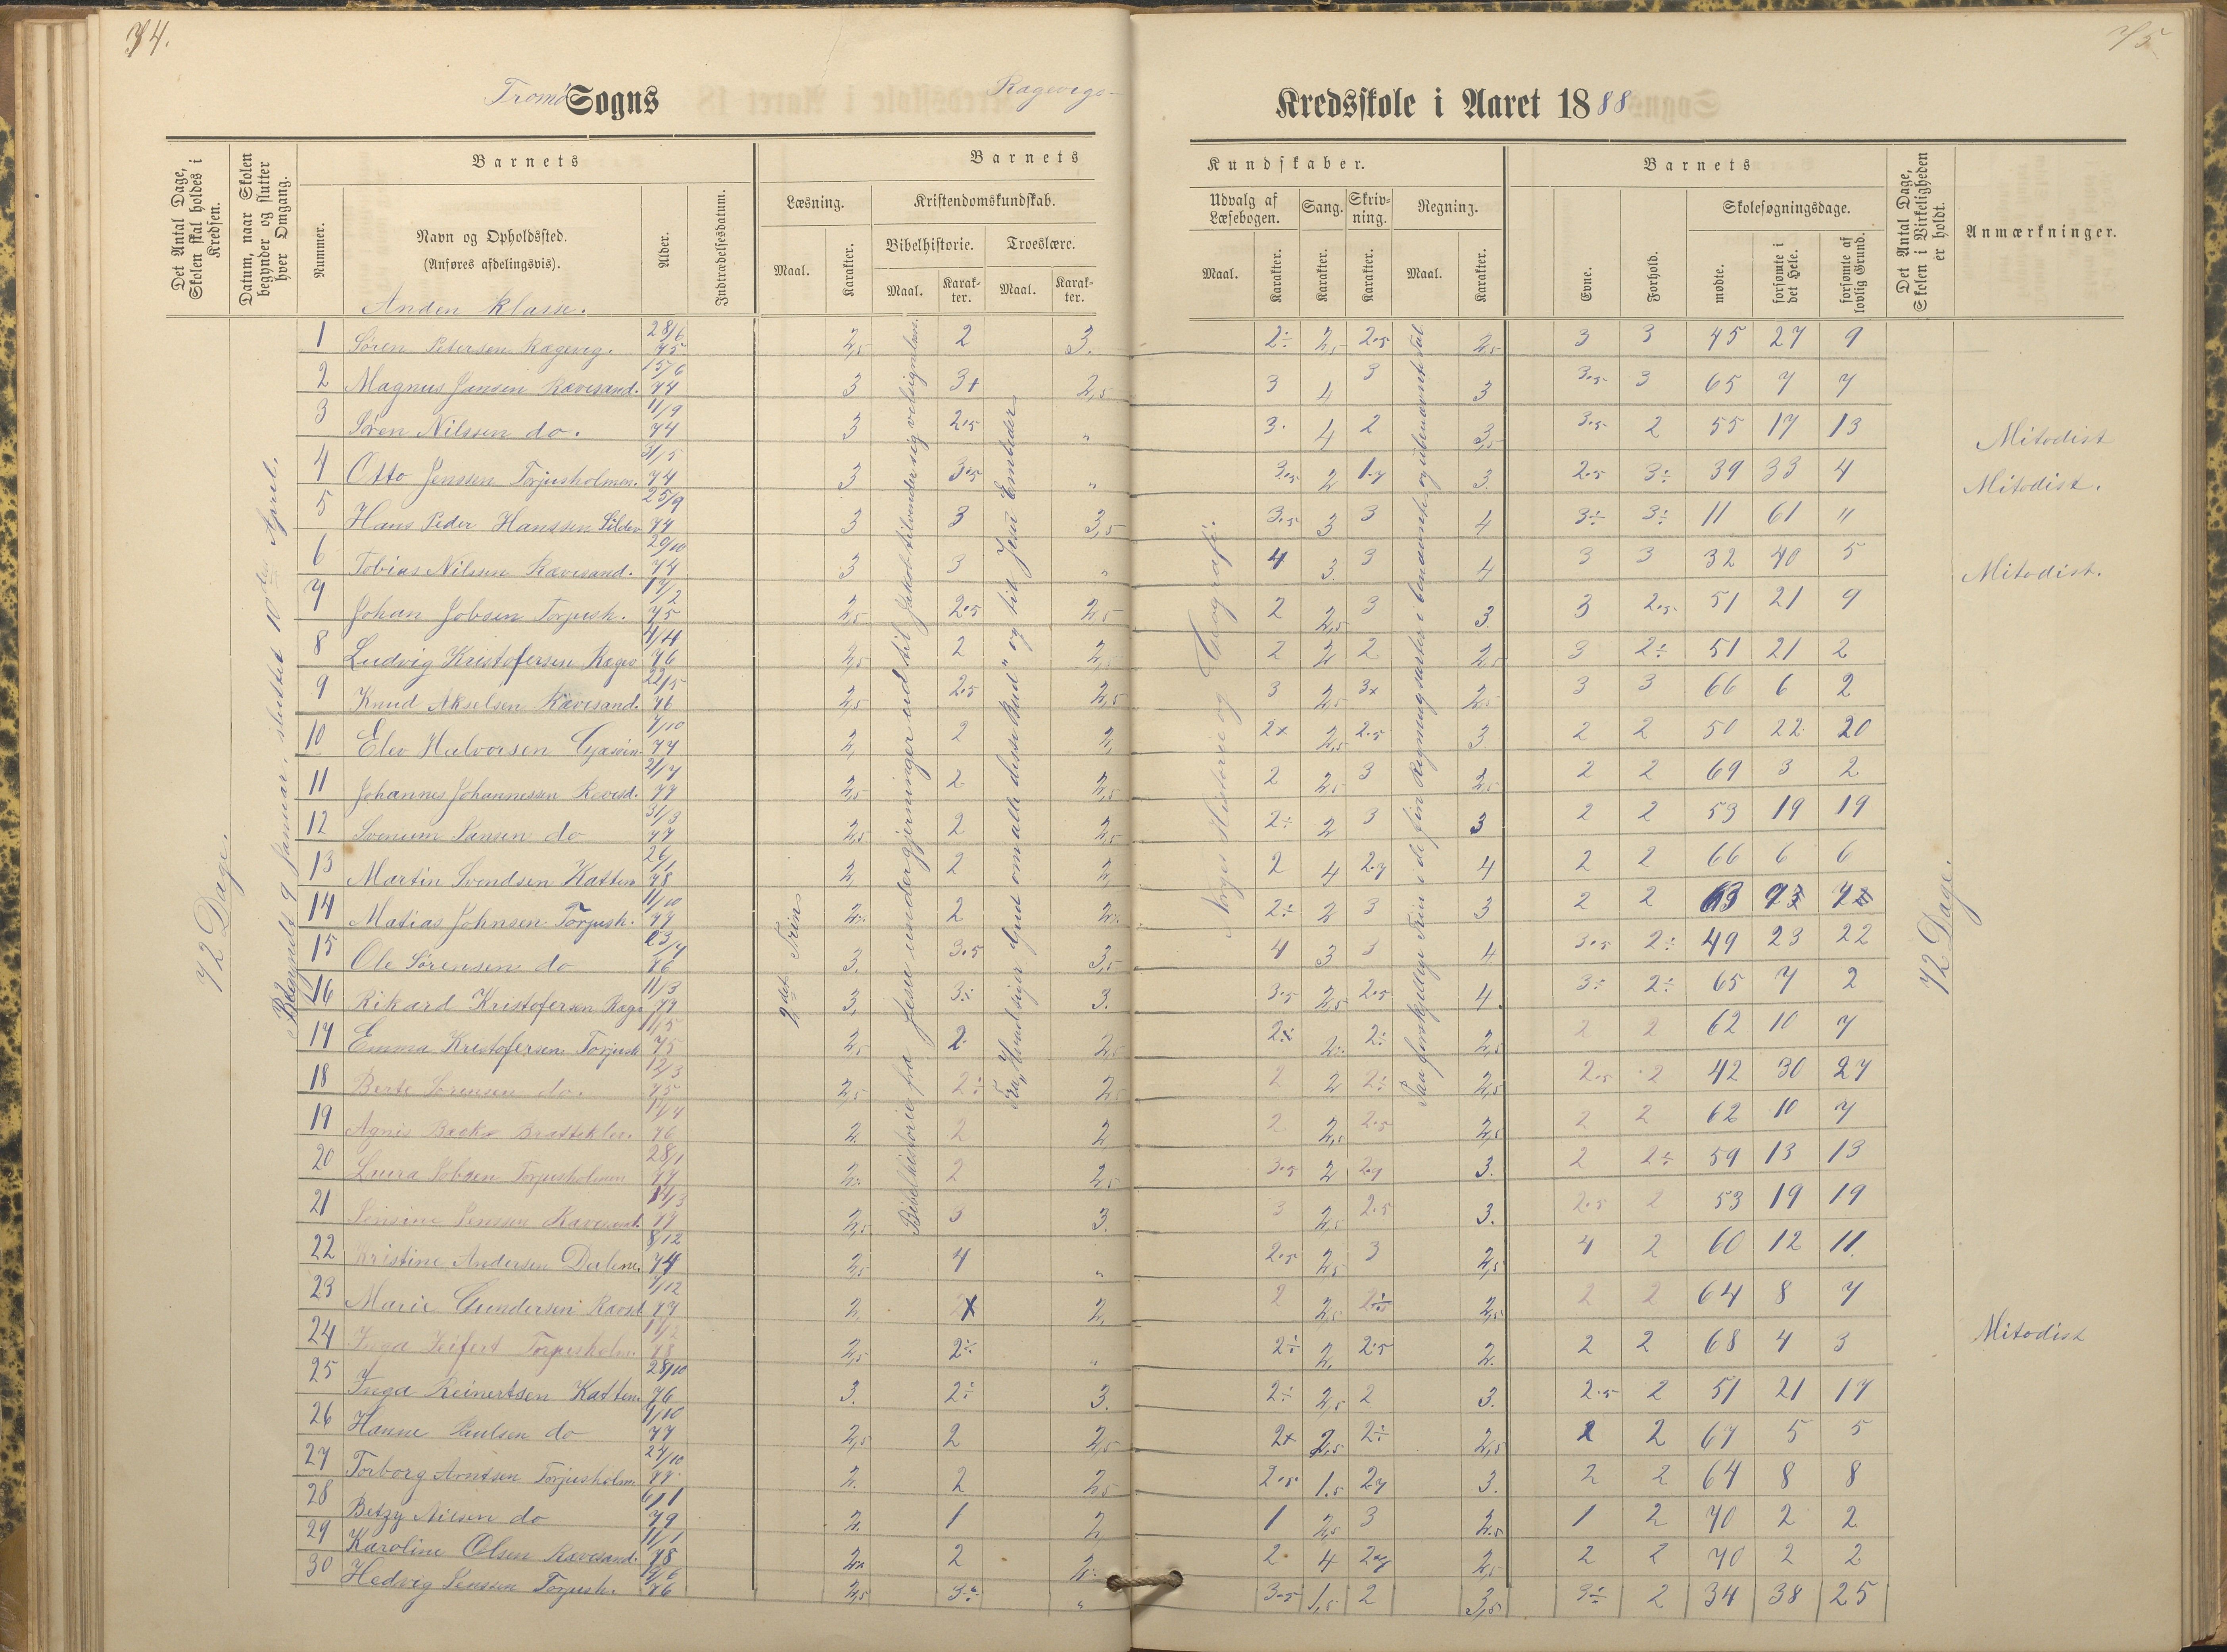 74.
75
Tromø Sogns
Ragevigs-
Kredsskole i Aaret 1888
Det Antal Dage, Skolen skal holdes i Kredsen.
Datum, naar Skolen begynder og slutter hver Omgang.
Barnets
Nummer.
Navn og Opholdssted.
(Anføres afdelingsvis).
Alder.
Indtrædelsesdatum.
Barnets
Kundskaber.
Læsning.
Maal.
Karakter.
Kristendomskundskab.
Bibelhistorie.
Maal.
Karakter.
Troeslære.
Maal.
Karakter.
Udvalg af Læsebogen.
Maal.
Karakter.
Sang.
Karakter.
Skrivning.
Karakter.
Regning.
Maal.
Karakter.
Barnets
Evne.
Forhold.
Skolesøgningsdage.
mødte.
forsømte i det Hele.
forsømte af lovlig Grund.
Det Antal Dage, Skolen i Virkeligheden er holdt.
Anmærkninger.
Anden klasse.
72 Dage.
Begyndt 9 Januar, sluttet 10de April.
2det Trin
Bibelhistorie fra Jesu undergjerninger
Norges Historie og Geografi.
72 Dage.
1 Søren Petersen Ragevig. 28/6 75 2,5 2 3. 2÷ 2,5 2.5 2,5 3 3 45 27 9
2 Magnus Jansen Rævesand. 15/6 74 3 3+ 2,5 3 4 3 3 3.5 3 65 7 7
3 Søren Nilssen do. 11/9 74 3 2.5 " 3. 4 2 3,5 3.5 2 55 17 13 Mitodist
4 Otto Jenssen Torjusholmen. 31/5 74 3 3.5 " 3.5 2 1.7 3 2.5 3÷ 39 33 4 Mitodist.
5 Hans Peder Hanssen 25/9 74 3 3 3,5 3.5 3 3 4 3÷ 3÷ 11 61 "
6 Tobias Nilssen Rævesand. 29/10 74 3 3 " 4 3 3 4 3 3 32 40 5 Mitodist.
7 Johan Jobsen Torjush. 17/2 75 2,5 2.5 2,5 2 2,5 3 3. 3 2.5 51 21 9
8 Ludvig Kristofersen Ragev 1/4 76 2,5 2 2,5 2 2 2 2,5 3 2÷ 51 21 2
9 Knud Akselsen Rævesand. 22/5 76 2,5 2.5 2,5 3 2,5 3+ 2,5 3 3 66 6 2
10 Elev Halvorsen 7/10 77 2, 2 2, 2+ 2,5 2.5 3 2 2 50 22 20
11 Johannes Johannessen Revesd. 21/7 77 2,5 2 2,5 2 2,5 3 2,5 2 2 69 3 2
12 Svenum Jansen do 31/3 77 2,5 2 2,5 2÷ 2 3 3 2 2 53 19 19
13 Martin Svendsen Katten 26/1 78 2, 2 2, 2 4 2.7 4 2 2 66 6 6
14 Matias Johnsen Torjush. 11/10 77 2÷ 2 2÷ 2÷ 2 3 3 2 2 63
15 Ole Sørensen do 23/7 76 3. 3.5 3,5 4 3 3 4 3.5 2÷ 49 23 22
16 Rikard Kristofersen Rage 11/3 77 3, 3÷ 3. 3.5 2,5 2.5 4. 3÷ 2÷ 65 7 2
17 Emma Kristofersen Torjush 11/5 75 2,5 2 2,5 2÷ 2÷ 2÷ 2,5 2 2 62 10 7
18 Berte Sørensen do. 12/3 75 2,5 2÷ 2,5 2 2 2÷ 2,5 2.5 2 42 30 27
19 Agnes Bratteklev. 17/4 76 2. 2 2 2 2,5 2.5 2,5 2 2 62 10 7
20 Laura Jobsen Torjusholmen 28/1 77 2÷ 2 2,5 3.5 2 2.7 3. 2 2÷ 59 13 13
21 Jensine Jenssen Rævesand. 77 2,5 3 3. 3 2,5 2.5 3. 2.5 2 53 19 19
22 Kristine Andersen Dalene. 8/12 74 2,5 4 " 2.5 2,5 3 2,5 4 2 60 12 11.
23 Marie Gundersen Rævsd 7/12 77 2, 2+ 2, 2 2,5 2÷ 2,5 2 2 64 8 7
24 Inga Seifert Torjusholm. 78 2,5 2÷ " 2÷ 2, 2.5 2. 2 2 68 4 3 Mitodist
25 Inga Reinertsen Katten. 28/10 76 3. 2÷ 3. 2÷ 2,5 2 3. 2.5 2 51 21 17
26 Hanne Paulsen do 9/10 77 2,5 2 2,5 2+ 2,5 2÷ 2,5 2 2 67 5 5
27 Torborg Arntsen Torjusholm 24/10 77 2. 2 2,5 2.5 1.5 2.7 3. 2 2 64 8 8
28 Betzy Nilsen do 6/1 79 2. 1 2, 1 2,5 3 2.5 1 2 70 2 2
29 Karoline Olsen Rævesand. 11/1 78 2 2÷ 2 4 2.7 2,5 2 2 70 2 2
30 Hedvig Jenssen Torjush. 76 2,5 3÷ " 3.5 1,5 2 3,5 3÷ 2 34 38 25